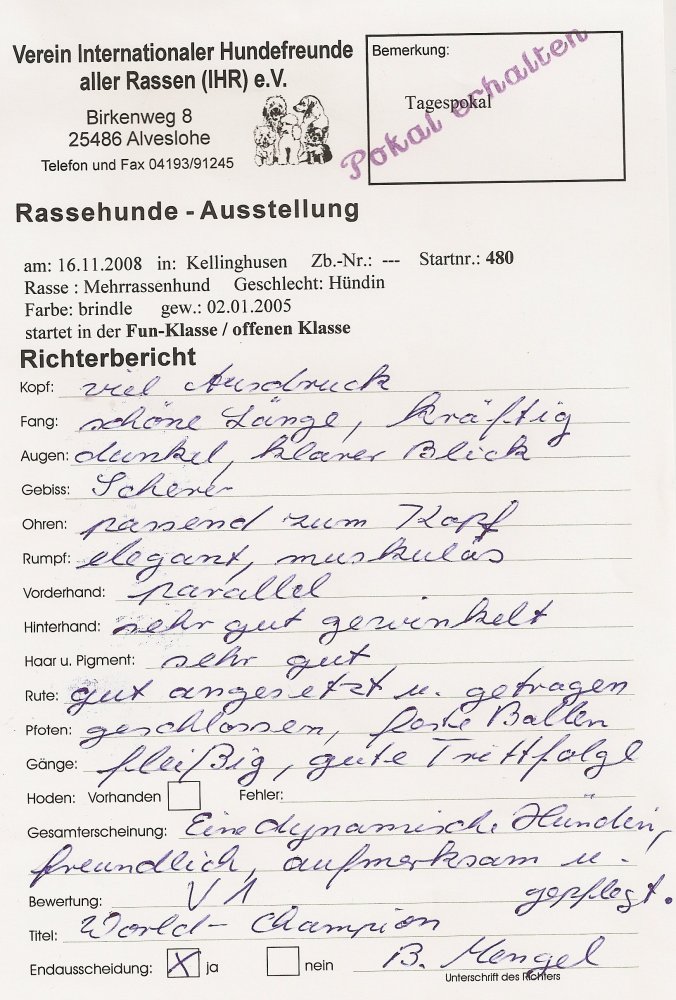 Verein Internationaler Hundefreunde
aller Rassen (IHR) e.V.
Birkenweg 8
25486 Alveslohe
Telefon und Fax 04193/91245
Bemerkung:
Tagespokal
Pokal erhalten
Rassehunde - Ausstellung
am: 16.11.2008 in: Kellinghusen Zb.-Nr.: --- Startnr.: 480
Rasse : Mehrrassenhund Geschlecht: Hündin
Farbe: brindle gew.: 02.01.2005
startet in der Fun-Klasse / offenen Klasse
Richterbericht
Kopf: viel Ausdruck
Fang: schöne Länge, kräftig
Augen: dunkel, klarer Blick
Gebiss: Schere
Ohren: passend zum Kopf
Rumpf: elegant, muskulös
Vorderhand: parallel
Hinterhand: sehr gut gewinkelt
Haar u. Pigment: sehr gut
Rute: gut angesetzt u. getragen
Pfoten: geschlossen, feste Ballen
Gänge: fleißig, gute Trittfolge
Hoden: Vorhanden Fehler:
Gesamterscheinung: Eine dynamische Hündin,
freundlich, aufmerksam u.
gepflegt.
Bewertung: V1
Titel: World-Champion
Endausscheidung: X ja nein B. Mengel
Unterschrift des Richters